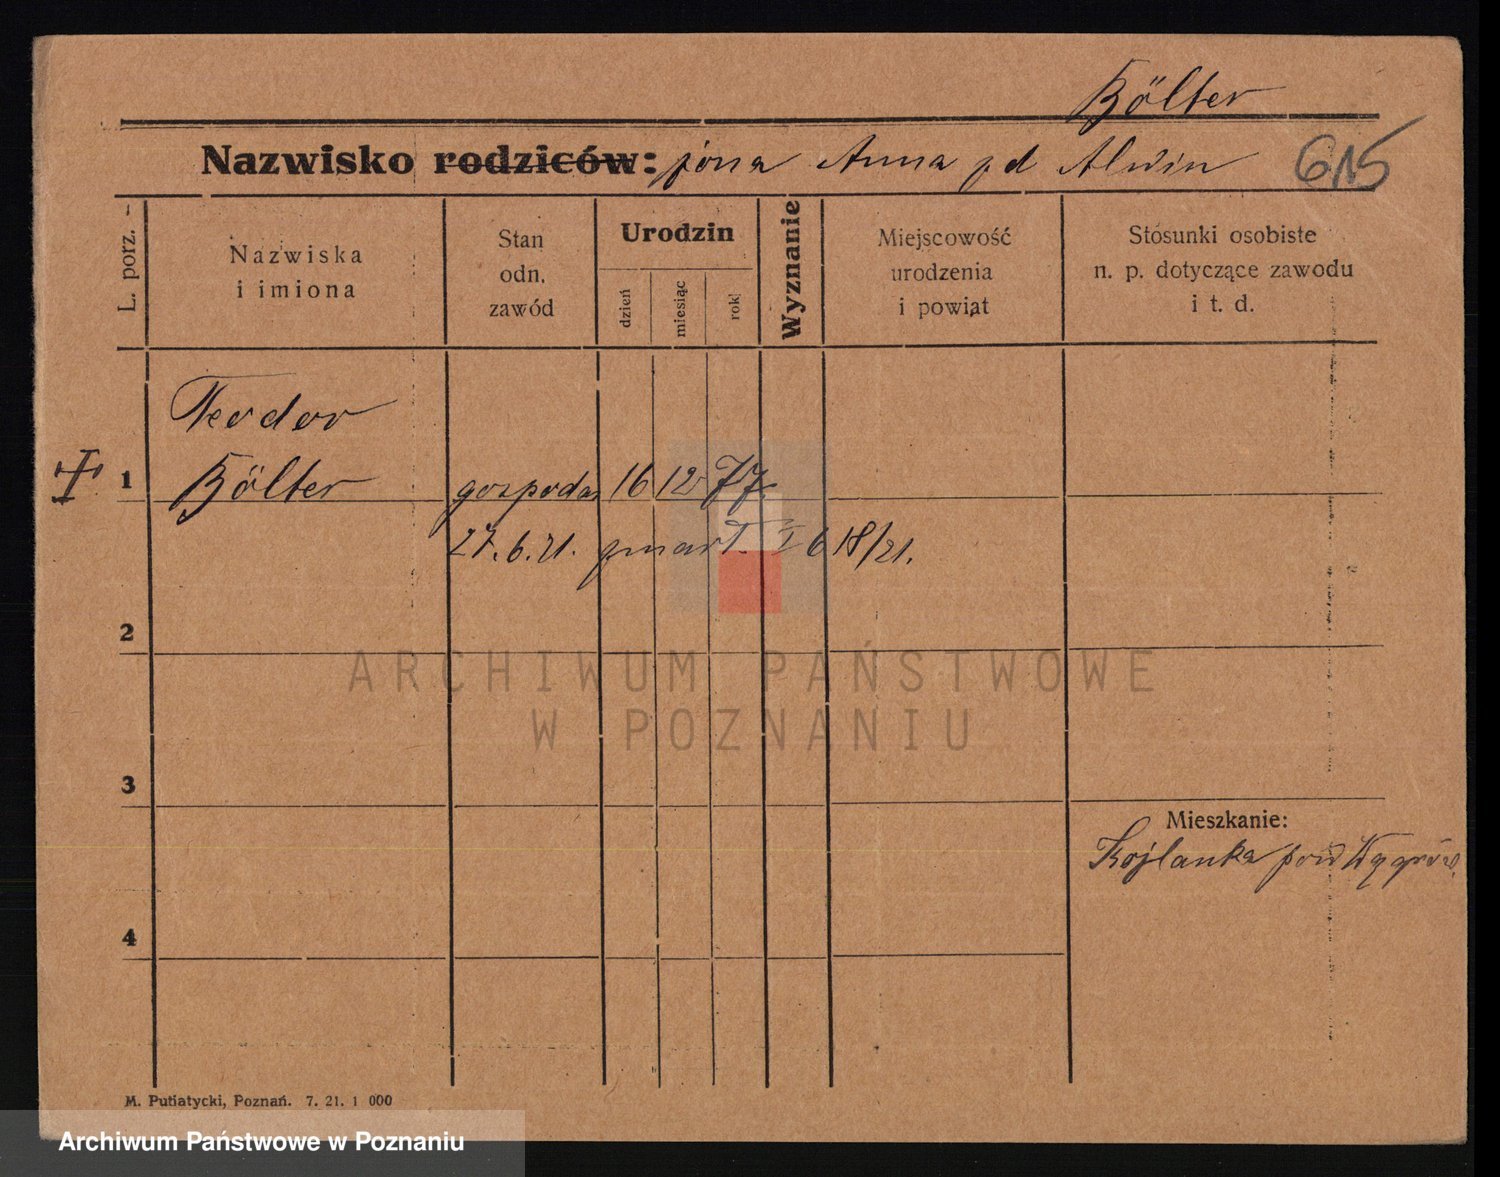 Bölter
Nazwisko rodziców: żona Anna zd Alwin 615
L. porz.
Nazwiska
i imiona
Stan
odn.
zawód
Urodzin
dzień
miesiąc
rok
Wyznanie
Miejscowość
urodzenia
i powiat
Stosunki osobiste
n. p. dotyczące zawodu
i t. d.
1
Teodor
Bölter gospodaz 16 12 77
27.6.21. zmarł I 6 18/21.
2
3
4
Mieszkanie:
pow Wągrów.
M. Putiatycki, Poznań. 7. 21. 1 000
ARCHIWUM PAŃSTWOWE
W POZNANIU
Archiwum Państwowe w Poznaniu